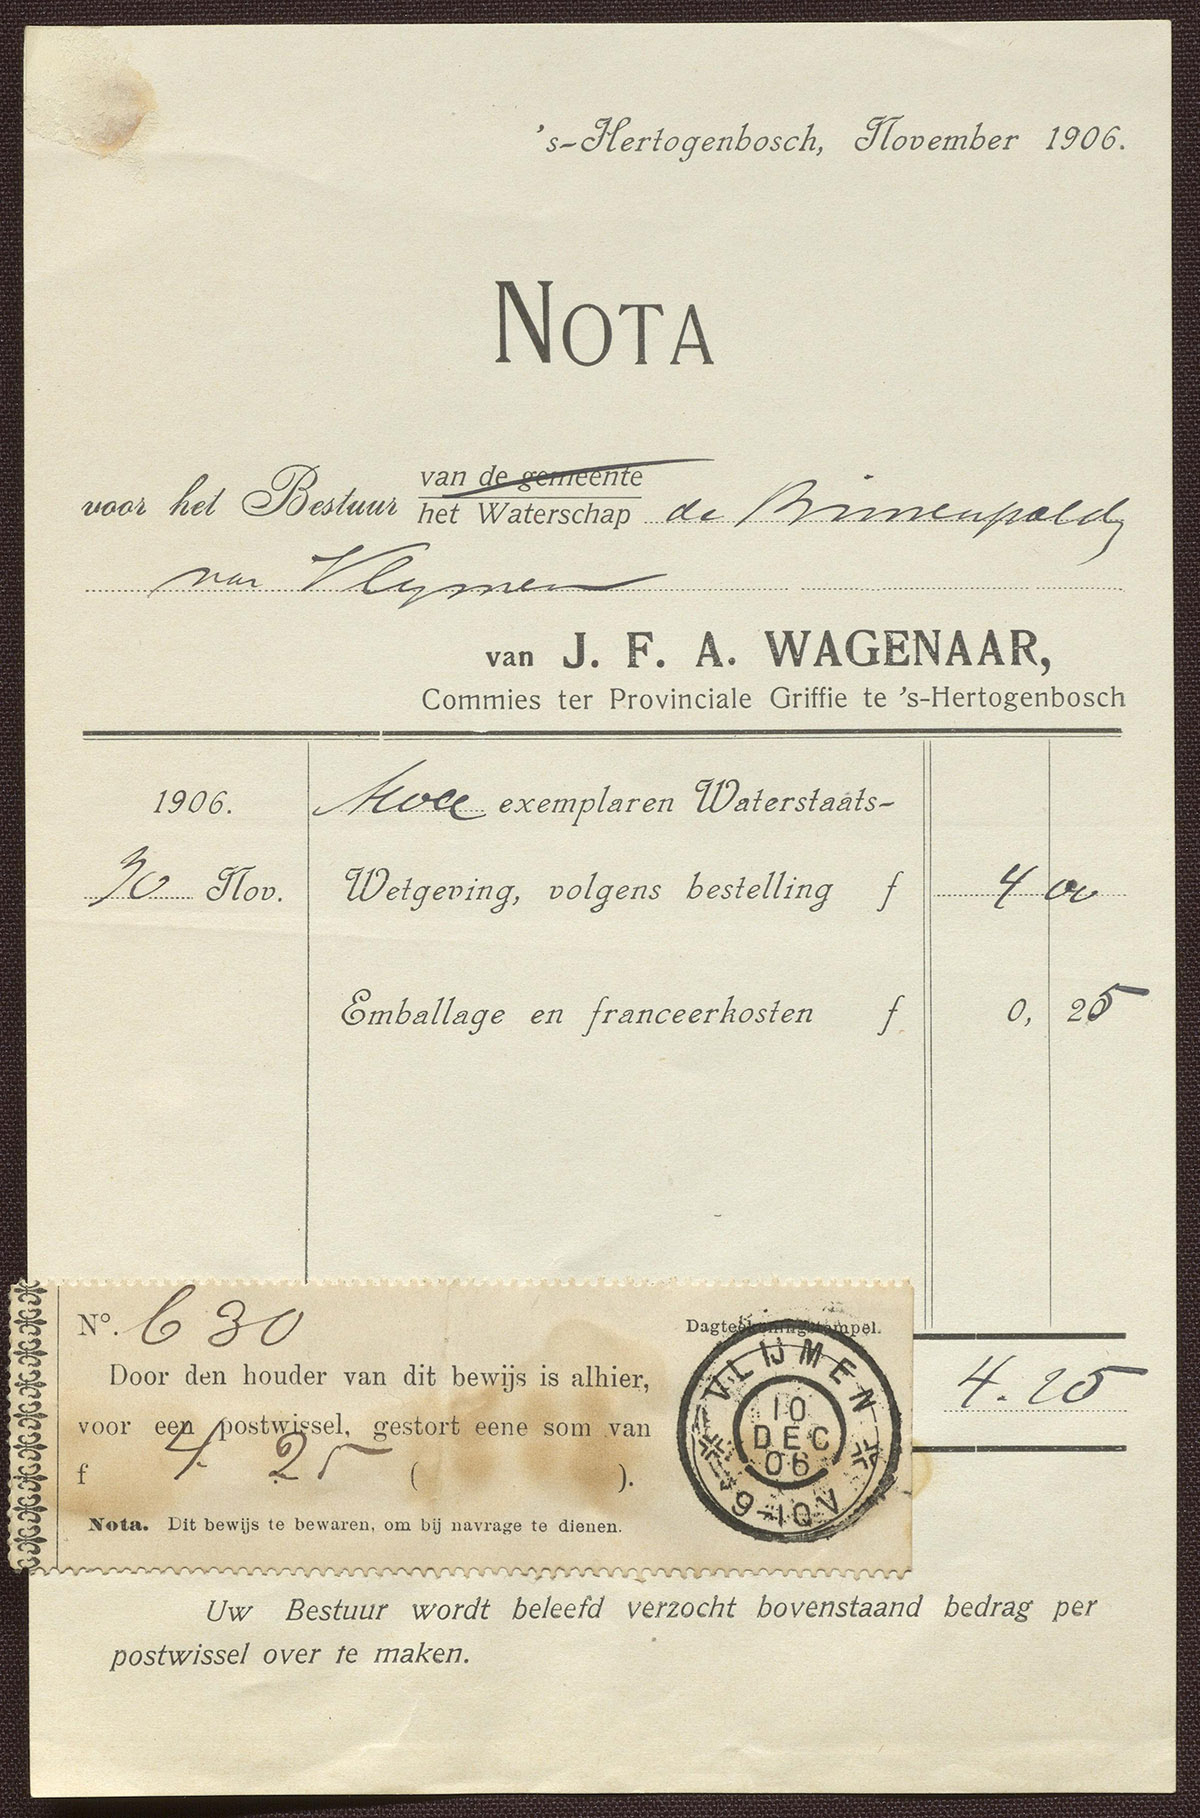 's-Hertogenbosch, November 1906.
NOTA
voor het Bestuur van de gemeente
het Waterschap de Binnenpolder
van Vlymen
van J. F. A. WAGENAAR,
Commies ter Provinciale Griffie te 's-Hertogenbosch
1906. Twee exemplaren Waterstaats-
30 Nov. Wetgeving, volgens bestelling f 4 00
Emballage en franceerkosten f 0, 25
4.25
No. 630
Dagteekeningstempel.
Door den houder van dit bewijs is alhier,
voor een postwissel, gestort eene som van
f 4. 25 ( ).
Nota. Dit bewijs te bewaren, om bij navrage te dienen.
VLIJMEN
10
DEC
06
9-10V
Uw Bestuur wordt beleefd verzocht bovenstaand bedrag per
postwissel over te maken.